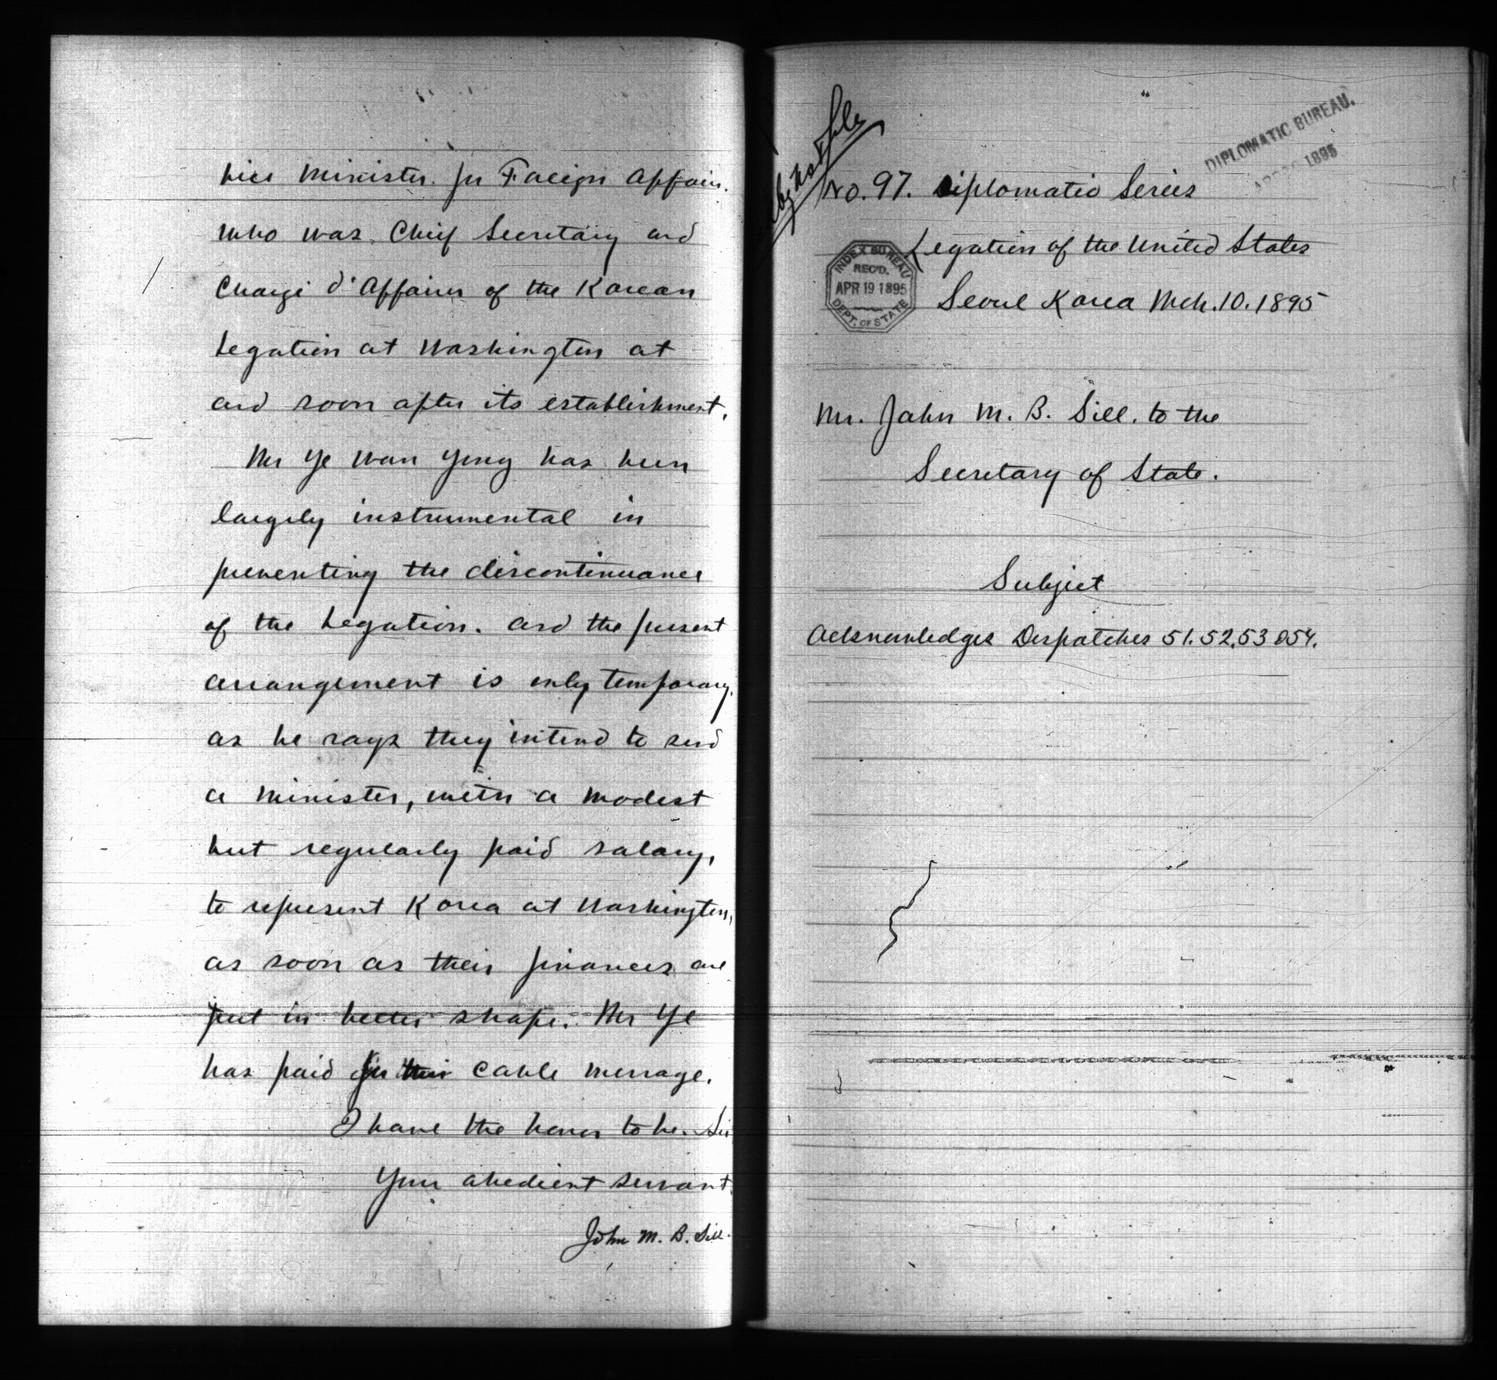 Vice Minister for Foreign Affairs.
who was Chief Secretary and
Chargé d'Affaires of the Korean
Legation at Washington at
and soon after its establishment.
Mr Ye Wan Yong has been
largely instrumental in
preventing the discontinuance
of the Legation. and the present
arrangement is only temporary,
as he says they intend to send
a Minister, with a modest
but regularly paid salary,
to represent Korea at Washington,
as soon as their finances are
put in better shape. Mr Ye
has paid for their cable message.
I have the honor to be. Sir
Your obedient servant
John M. B. Sill.
file
No. 97. Diplomatic Series
DIPLOMATIC BUREAU.
1895
Legation of the United States
Seoul Korea Mch. 10. 1895
INDEX BUREAU
REC'D.
APR 19 1895
DEPT. OF STATE
Mr. John M. B. Sill. to the
Secretary of State.
Subject
Acknowledges Despatches 51. 52. 53 & 54.